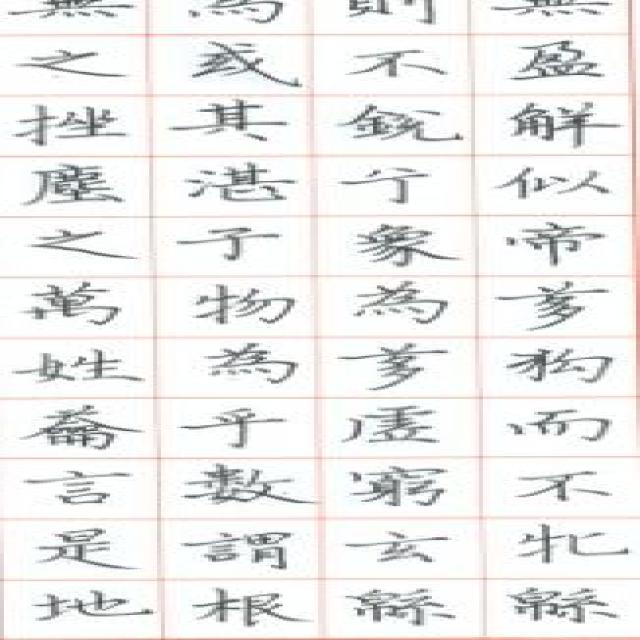 無為則無
之或不盈
挫其銳解
塵湛兮似
之子象帝
萬物為芻
姓為芻狗
籥乎虛而
言數窮不
是謂玄牝
地根綿綿